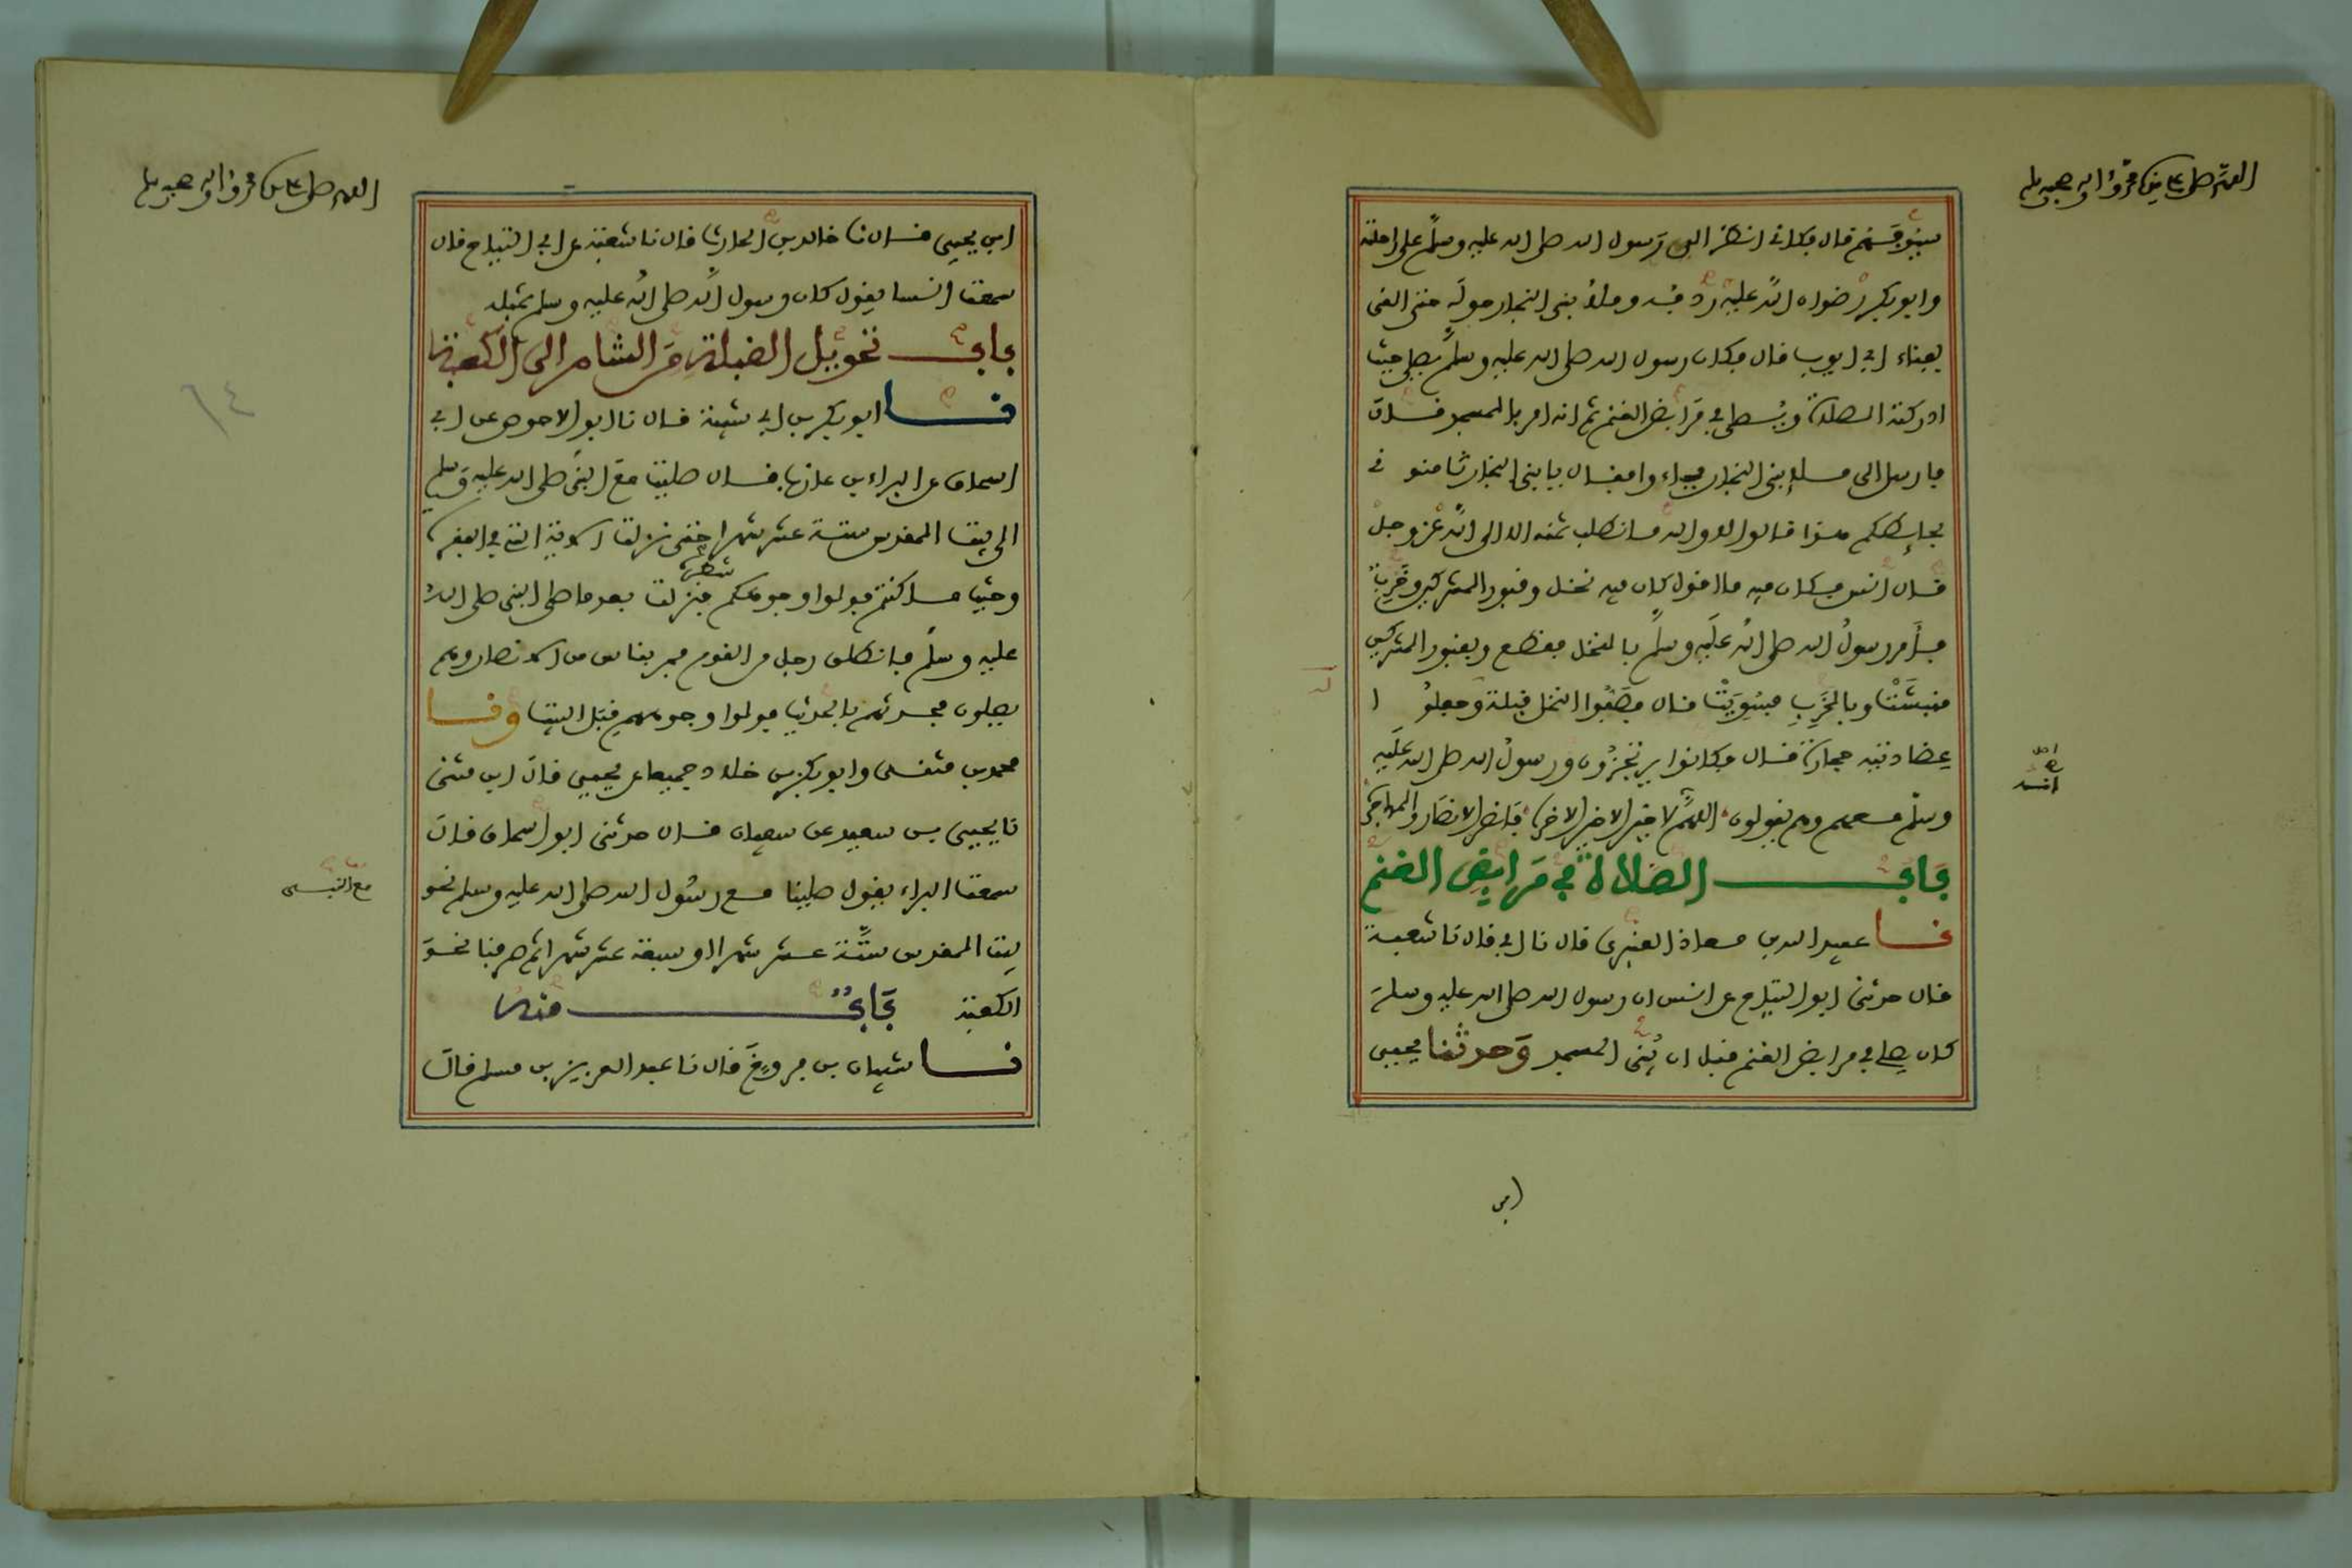 اللهم صل على سيدنا محمد وآله وصحبه وسلم
بسيوفهم قال فكاني انظر الى رسول الله صلى الله عليه وسلم على راحلته
وابو بكر رضوان الله عليه ردفه وملأ بني النجار حوله حتى القى
بفناء ابي ايوب قال فكان رسول الله صلى الله عليه وسلم يصلي حيث
ادركته الصلاة ويصلي في مرابض الغنم ثم انه امر بالمسجد قال
فارسل الى ملإ بني النجار فجاءوا فقال يا بني النجار ثامنوني
بحائطكم هذا قالوا لا والله ما نطلب ثمنه الا الى الله عز وجل
قال انس فكان فيه ما اقول كان فيه نخل وقبور المشركين وخرب
فأمر رسول الله صلى الله عليه وسلم بالنخل فقطع وبقبور المشركين
فنبشت وبالخرب فسويت قال فصفوا النخل قبلة وجعلوا
عضادتيه حجارة قال فكانوا يرتجزون ورسول الله صلى الله عليه
وسلم معهم وهم يقولون اللهم لا خير الا خير الاخره فانصر الانصار والمهاجره
باب الصلاة في مرابض الغنم
نا عبيد الله بن معاذ العنبري قال نا ابي قال نا شعبة
قال حدثني ابو التياح عن انس ان رسول الله صلى الله عليه وسلم
كان يصلي في مرابض الغنم قبل ان يبنى المسجد وحدثنا يحيى
ابن
اللهم صل على سيدنا محمد وآله وصحبه وسلم
ابن يحيى قال نا خالد بن الحارث قال نا شعبة عن ابي التياح قال
سمعت انسا يقول كان رسول الله صلى الله عليه وسلم بمثله
باب تحويل القبلة من الشام الى الكعبة
نا ابو بكر بن ابي شيبة قال نا ابو الاحوص عن ابي
اسحاق عن البراء بن عازب قال صليت مع النبي صلى الله عليه وسلم
الى بيت المقدس ستة عشر شهرا حتى نزلت الاية التي في البقرة
وحيث ما كنتم فولوا وجوهكم شطره فنزلت بعد ما صلى النبي صلى الله
عليه وسلم فانطلق رجل من القوم فمر بناس من الانصار وهم
يصلون فحدثهم بالحديث فولوا وجوههم قبل البيت ونا
محمد بن مثنى وابو بكر بن خلاد جميعا عن يحيى قال ابن مثنى
نا يحيى بن سعيد عن سفيان قال حدثني ابو اسحاق قال
سمعت البراء يقول صلينا مع رسول الله صلى الله عليه وسلم نحو
مع النبي
بيت المقدس ستة عشر شهرا او سبعة عشر شهرا ثم صرفنا نحو
الكعبة باب منه
نا شيبان بن فروخ قال نا عبد العزيز بن مسلم قال
٦٤